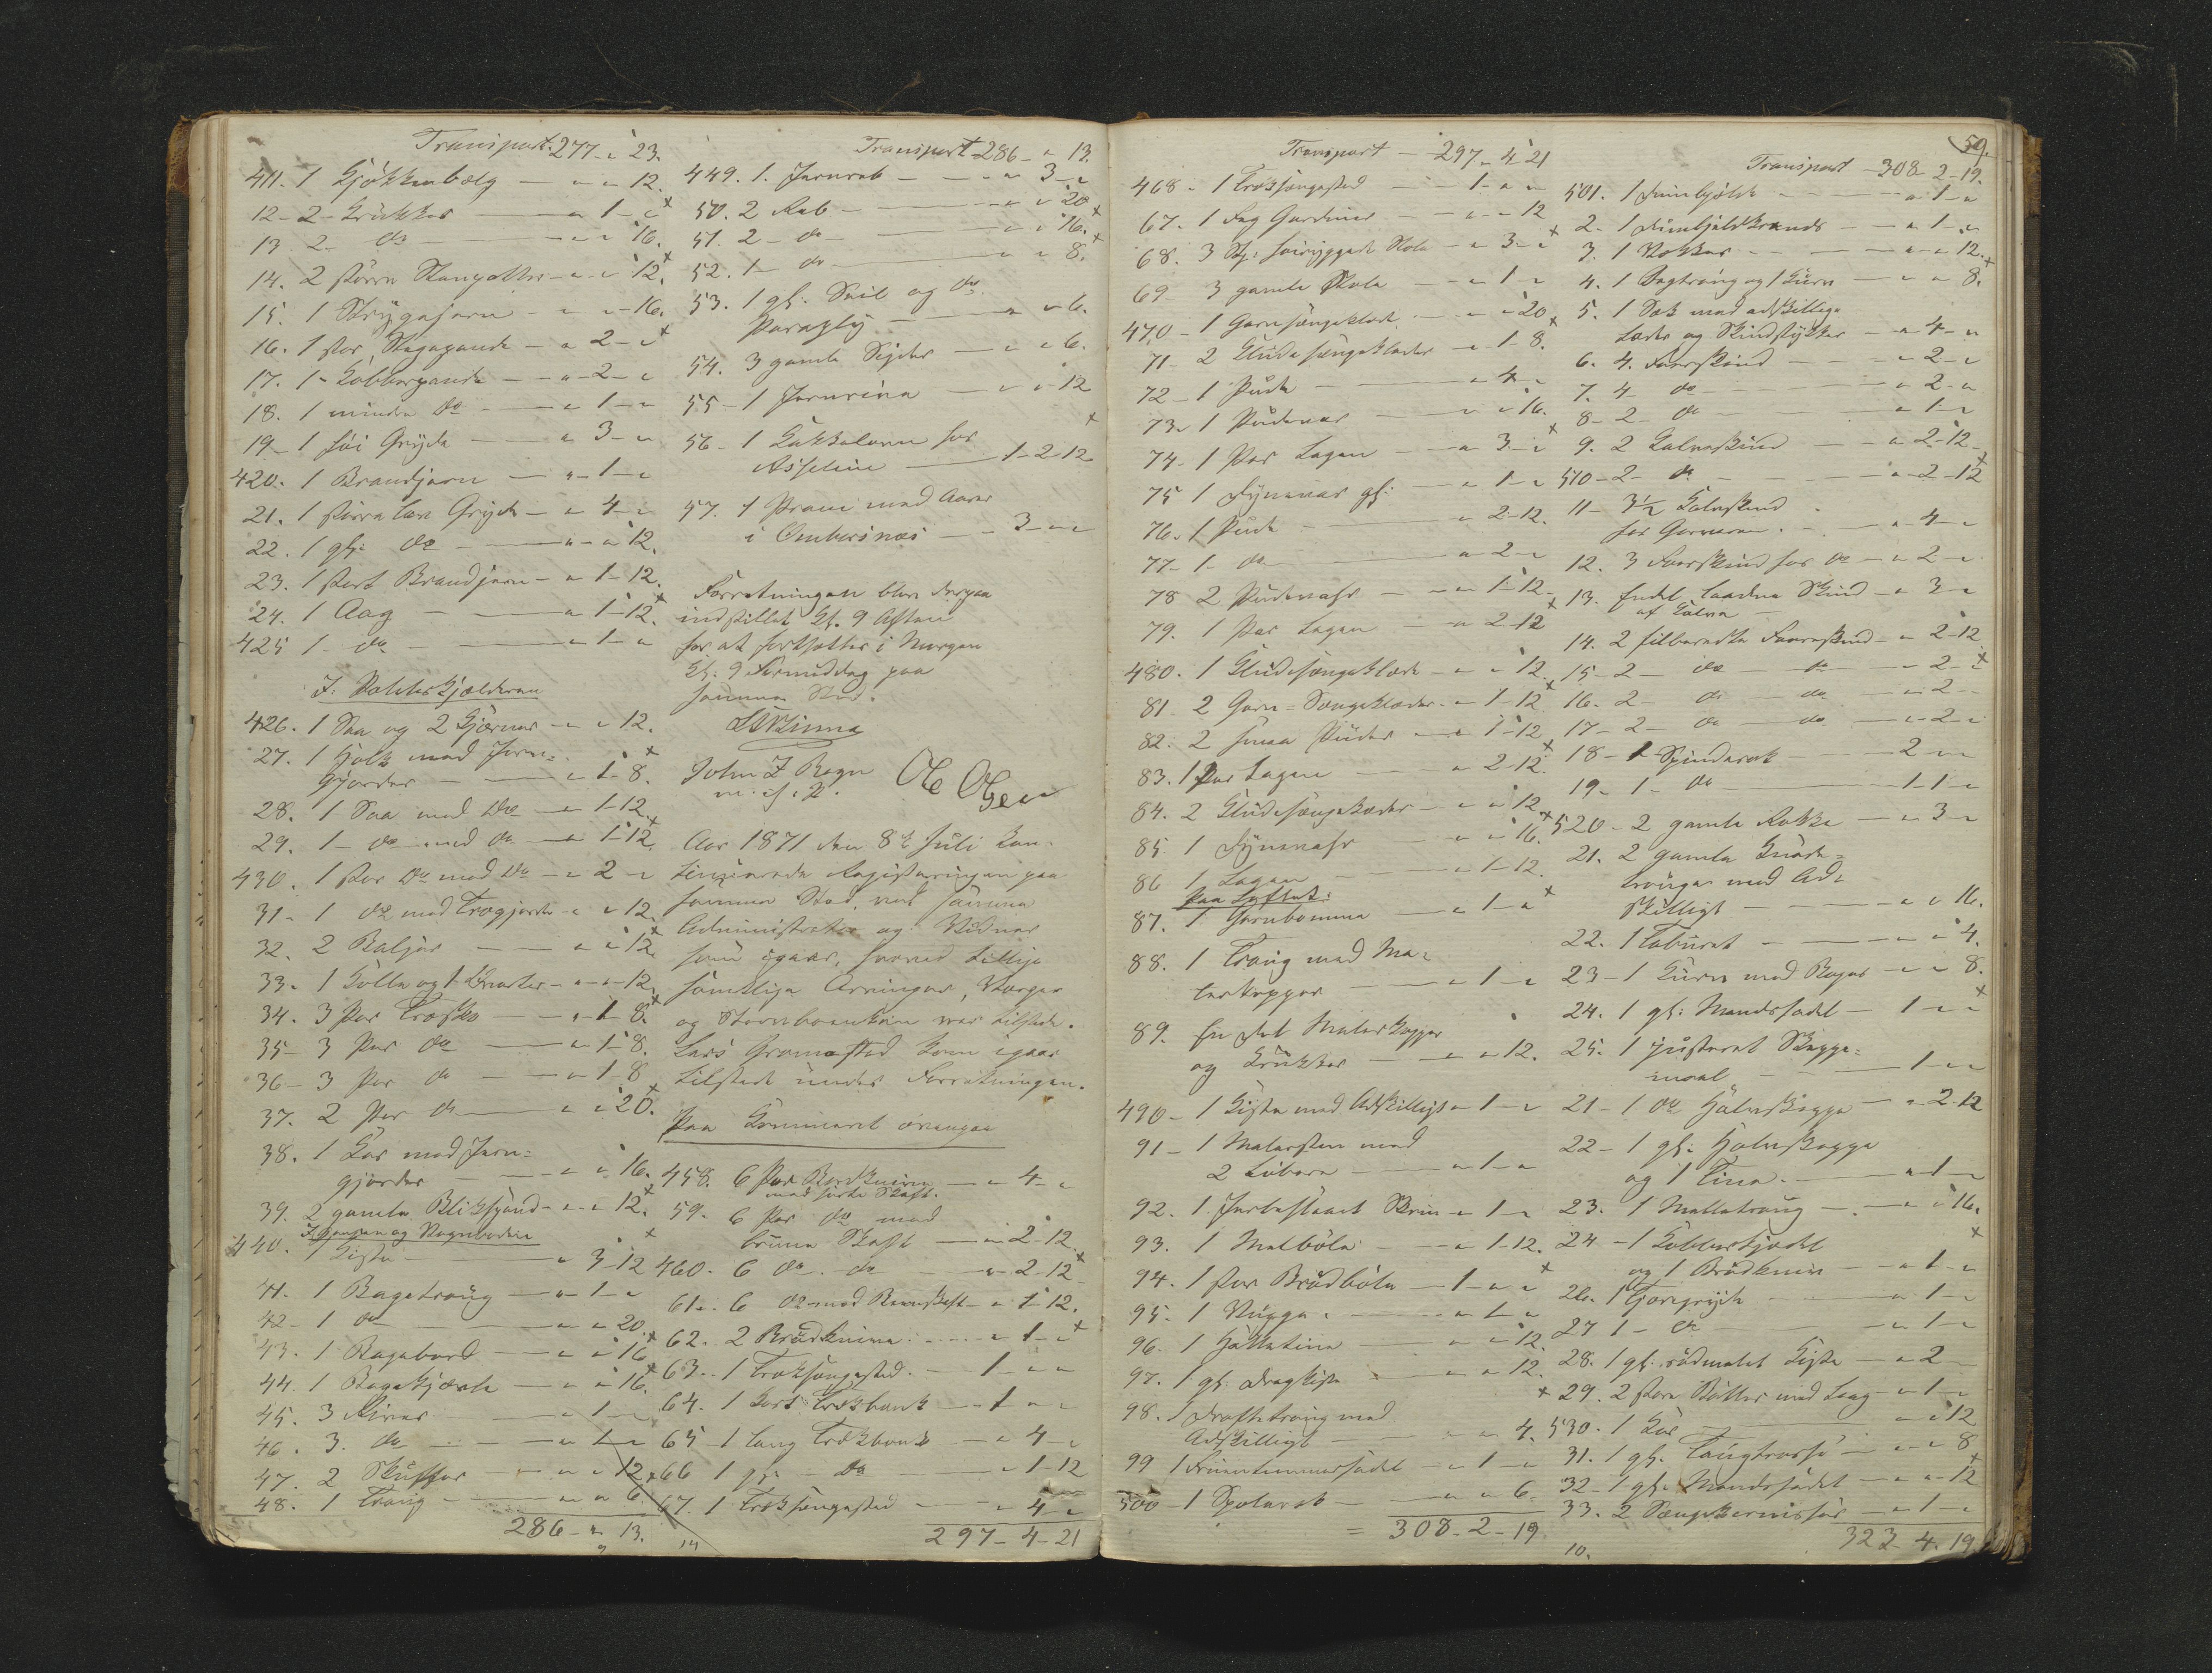 Transport 277 - " 23.
411. 1 Kjøkkenbælg - " - " 12.
12 - 2 - Krukker - " 1 - "
13. 2 - do - " - " 16.
14. 2 større Steengøtter - " - " 12.
15. 1 Strygejern - " - " 16.
16. 1 stor Stegepande - " 2 - "
17. 1 Kobberpande - " 2 - "
18. 1 mindre do - " 1 - "
19 - 1 høi Gryde - " 3 - "
420. 1 Brandjern - " 1 - "
21. 1 større lav Gryde - " 4 - "
22. 1 gl: do - " - " 12.
23. 1 stort Brandjern - " 1 - 12.
24. 1 Aag - " 1 - 12.
425 1 - do - " 1 - "
I Kjælderen
426. 1 Saa og 2 Kjærner - " - " 12.
27. 1 Holk med Jern-
gjorder - " 1 - 8.
28. 1 Saa med do - " 1 - 12
29. 1 - do med do - " 1 - 12.
430. 1 stor do med do - " 2 - "
31 - 1 do med Trægjorder - " - " 12.
32. 2 Baljer - " - " 12.
33. 1 Kolle og 1 - " - " 12.
34. 3 Par Træsko - " 1 - 8.
35 - 3 Par do - " 1 - 8.
36 - 3 Par do - " 1 - 8
37. 2 Par do - " - " 20.
38. 1 Kar med Jern-
gjorder - " - " 16.
39. 2 gamle Blikspand - " - " 12.
440. 1 Kiste - " 3 - 12
41. 1 Bagetroug - " 1 - "
42 - 1 do - " - " 20.
43. 1 Bagebord - " - " 16
44. 1 Bagekjævle - " - " 16.
45. 3 River - " 1 - "
46. 3. do - " 1 - "
47. 2 Skuffer - " - " 12
48. 1 Troug - " - " 6.
286 - " 13.
Transport 286 - " 13.
449. 1. Jernreb - " 3 - "
50. 2 Reb - " - " 20
51. 2 - do - " - " 16.
52. 1 - do - " - " 8.
53. 1 gl: Seil og do
Paraply - " - " 6.
54. 3 gamle Sigder - " - " 6.
55 - 1 Jernrive - " - " 12
56 - 1 Kakkelovn hos
- 1 - 2 - 12
57. 1 Pram med Aarer
i - 3 - " - "
Forretningen blev derpaa
indstillet Kl. 9 Aften
for at fortsættes i Morgen
Kl. 9 Formiddag paa
samme Sted.
John I Begn
m. f. P.
Ole Olsen
Aar 1871 den 8de Juli kon-
tinuerede Registreringen paa
samme Sted, med samme
Administrator og Vidner
som igaar, hvorved tillige
samtlige Arvinger, Værger
og Stervboenken var tilstede.
Lars Gromsstad kom igaar
tilstede under Forretningen.
Paa Kammeret ovenpaa
458. 6 Par Bordknive - " 4 - "
med sorte Skaft.
59. 6 Par do med
brune Skaft - " 2 - 12.
460. 6 do do - " 2 - 12
61. 6 do med Beenskaft - " 1 - 12.
62. 2 Brødknive - " 1 - "
63. 1 Træksengested - 1 - " - "
64. 1 kort Trækbænk - 1 - " - "
65 - 1 lang Trækbænk - " 4 - "
66 1 gl: - do - " 1 - 12
67. 1 Træksengested - " 4 - "
297 - 4 - 21
Transport - 297 - 4 21
468 - 1 Træksengested - 1 - " - "
67. 1 Fag Gardiner - " - " 12
68. 3 Stk: høiryggede Stole - " 3 - "
69 3 gamle Stole - " 1 - "
470 - 1 Garnsengeklæde - " - " 20
71 - 2 Kludesengeklæder - " 1 - 8.
72 - 1 Pude - " 4 - "
73. 1 Pudevar - " - " 16.
74 - 1 Par Lagen - " 3 - "
75 1 Dynevar gl: - " 1 - "
76. 1 Pude - " 2 - 12.
77 - 1 - do - " 2 - "
78 2 Pudevahr - " 1 - 12
79. 1 Par Lagen - " 2 - 12
480. 1 Kludesengeklæde - " - " 12
81 2 Garn-Sengeklæder - " 1 - 12
82. 2 smaa Puder - " 1 - 12
83. 1 Par Lagen - " 2 - 12.
84. 2 Kludesengeklæder - " - " 12
85 1 Dynevahr - " - " 16.
86 1 Lagen - " 1 - 12.
Paa Loftet:
87. 1 Garnbomme - " 1 - "
88. 1 Troug med Ma-
lerkopper - " 1 - "
89. En Deel Malerkopper
og Krukker - " - " 12.
490 - 1 Kiste med Adskilligt - " 1 - "
91 - 1 Malersten med
2 Løbere - " 1 - "
92. 1 Jernbeslaaet Skrin - " 1 - "
93. 1 Malbøle - " 1 - 12.
94. 1 stor Brødbøle - 1 - " - "
95. 1 Vugge - " 1 - "
96. 1 Høkletine - " - " 12.
97. 1 gl: Dragkiste - " - " 12.
98. 1 Droftetroug med
Adskilligt - " - " 4.
99 1 Fruentimmersadel - " 1 - "
500 - 1 Spolerok - " - " 6.
= 308 - 2 - 19
59.
Transport - 308 - 2 - 19.
501. 1 - " 1 - "
2. 1 - " 1 - "
3. 1 Rokker - " - " 12.
4. 1 Bagtroug og 1 Kurv - " - " 8.
5. 1 Sæk med adskillige
Læder og Skindstykker - " 4 - "
6. 4. Faareskind - " 2 - "
7. 4 do - " 2 - "
8 - 2 - do - " 1 - "
9. 2 Kalveskind - " 2 - 12
510 - 2 - do - " 2 - 12
11 - 3 1/2 Kalveskind
hos Garveren - " 4 - "
12. 3 Faareskind hos do - " 2 - "
13. Endel laadne Skind - " 3 - "
af Kalve
14. 2 tilberedte Faareskind - " 2 - 12
15 - 2 - do do - " 2 - "
16. 2 - do do - " 2 -
17 - 2 - do do - " 2 - "
18 - 1 Spinderok - 2 - "
19 - 1 - do - 1 - 1 - "
520 - 2 gamle Rokke - " 3 - "
21. 2 gamle Knade-
trouge med Ad-
skilligt - " - " 16.
22. 1 Taburet - " - " 4.
23 - 1 Kurv med Bøger - " - " 8.
24. 1 gl: Mandssadel - 1 - " - "
25. 1 justeret Skjæppe-
maal - 1 - " - "
21 - 1 do Halvskjæppe - " 2 - 12
22 - 1 gl: Halvskjæppe
og 1 Tine - " 1 - "
23. 1 Melketroug - " - " 16.
24 - 1 Kobberkjedel
og 1 Brødkniv - " 1 - "
26. 1 Tjæregryde - " 1 - "
27 1 - do - " 1 - "
28. 1 gl: rødmalet Kiste - " 2 -
29. 2 store Bøtter med Laag - " 1 - "
530. 1 Kar - " - " 12
31. 1 gl: - " - " 8
32 - 1 gl: Mandssadel - " - " 12
33. 2 - " 1 - "
323 - 4 - 19
10.